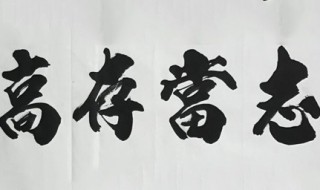 志當存高